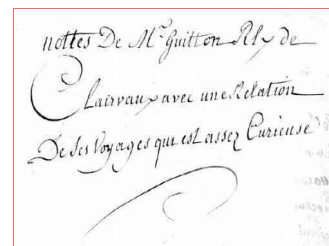 nottes De Mr. Guitton Rlx de
Clairvaux avec une Relation
De ses Voyages qui est assez Curieuse